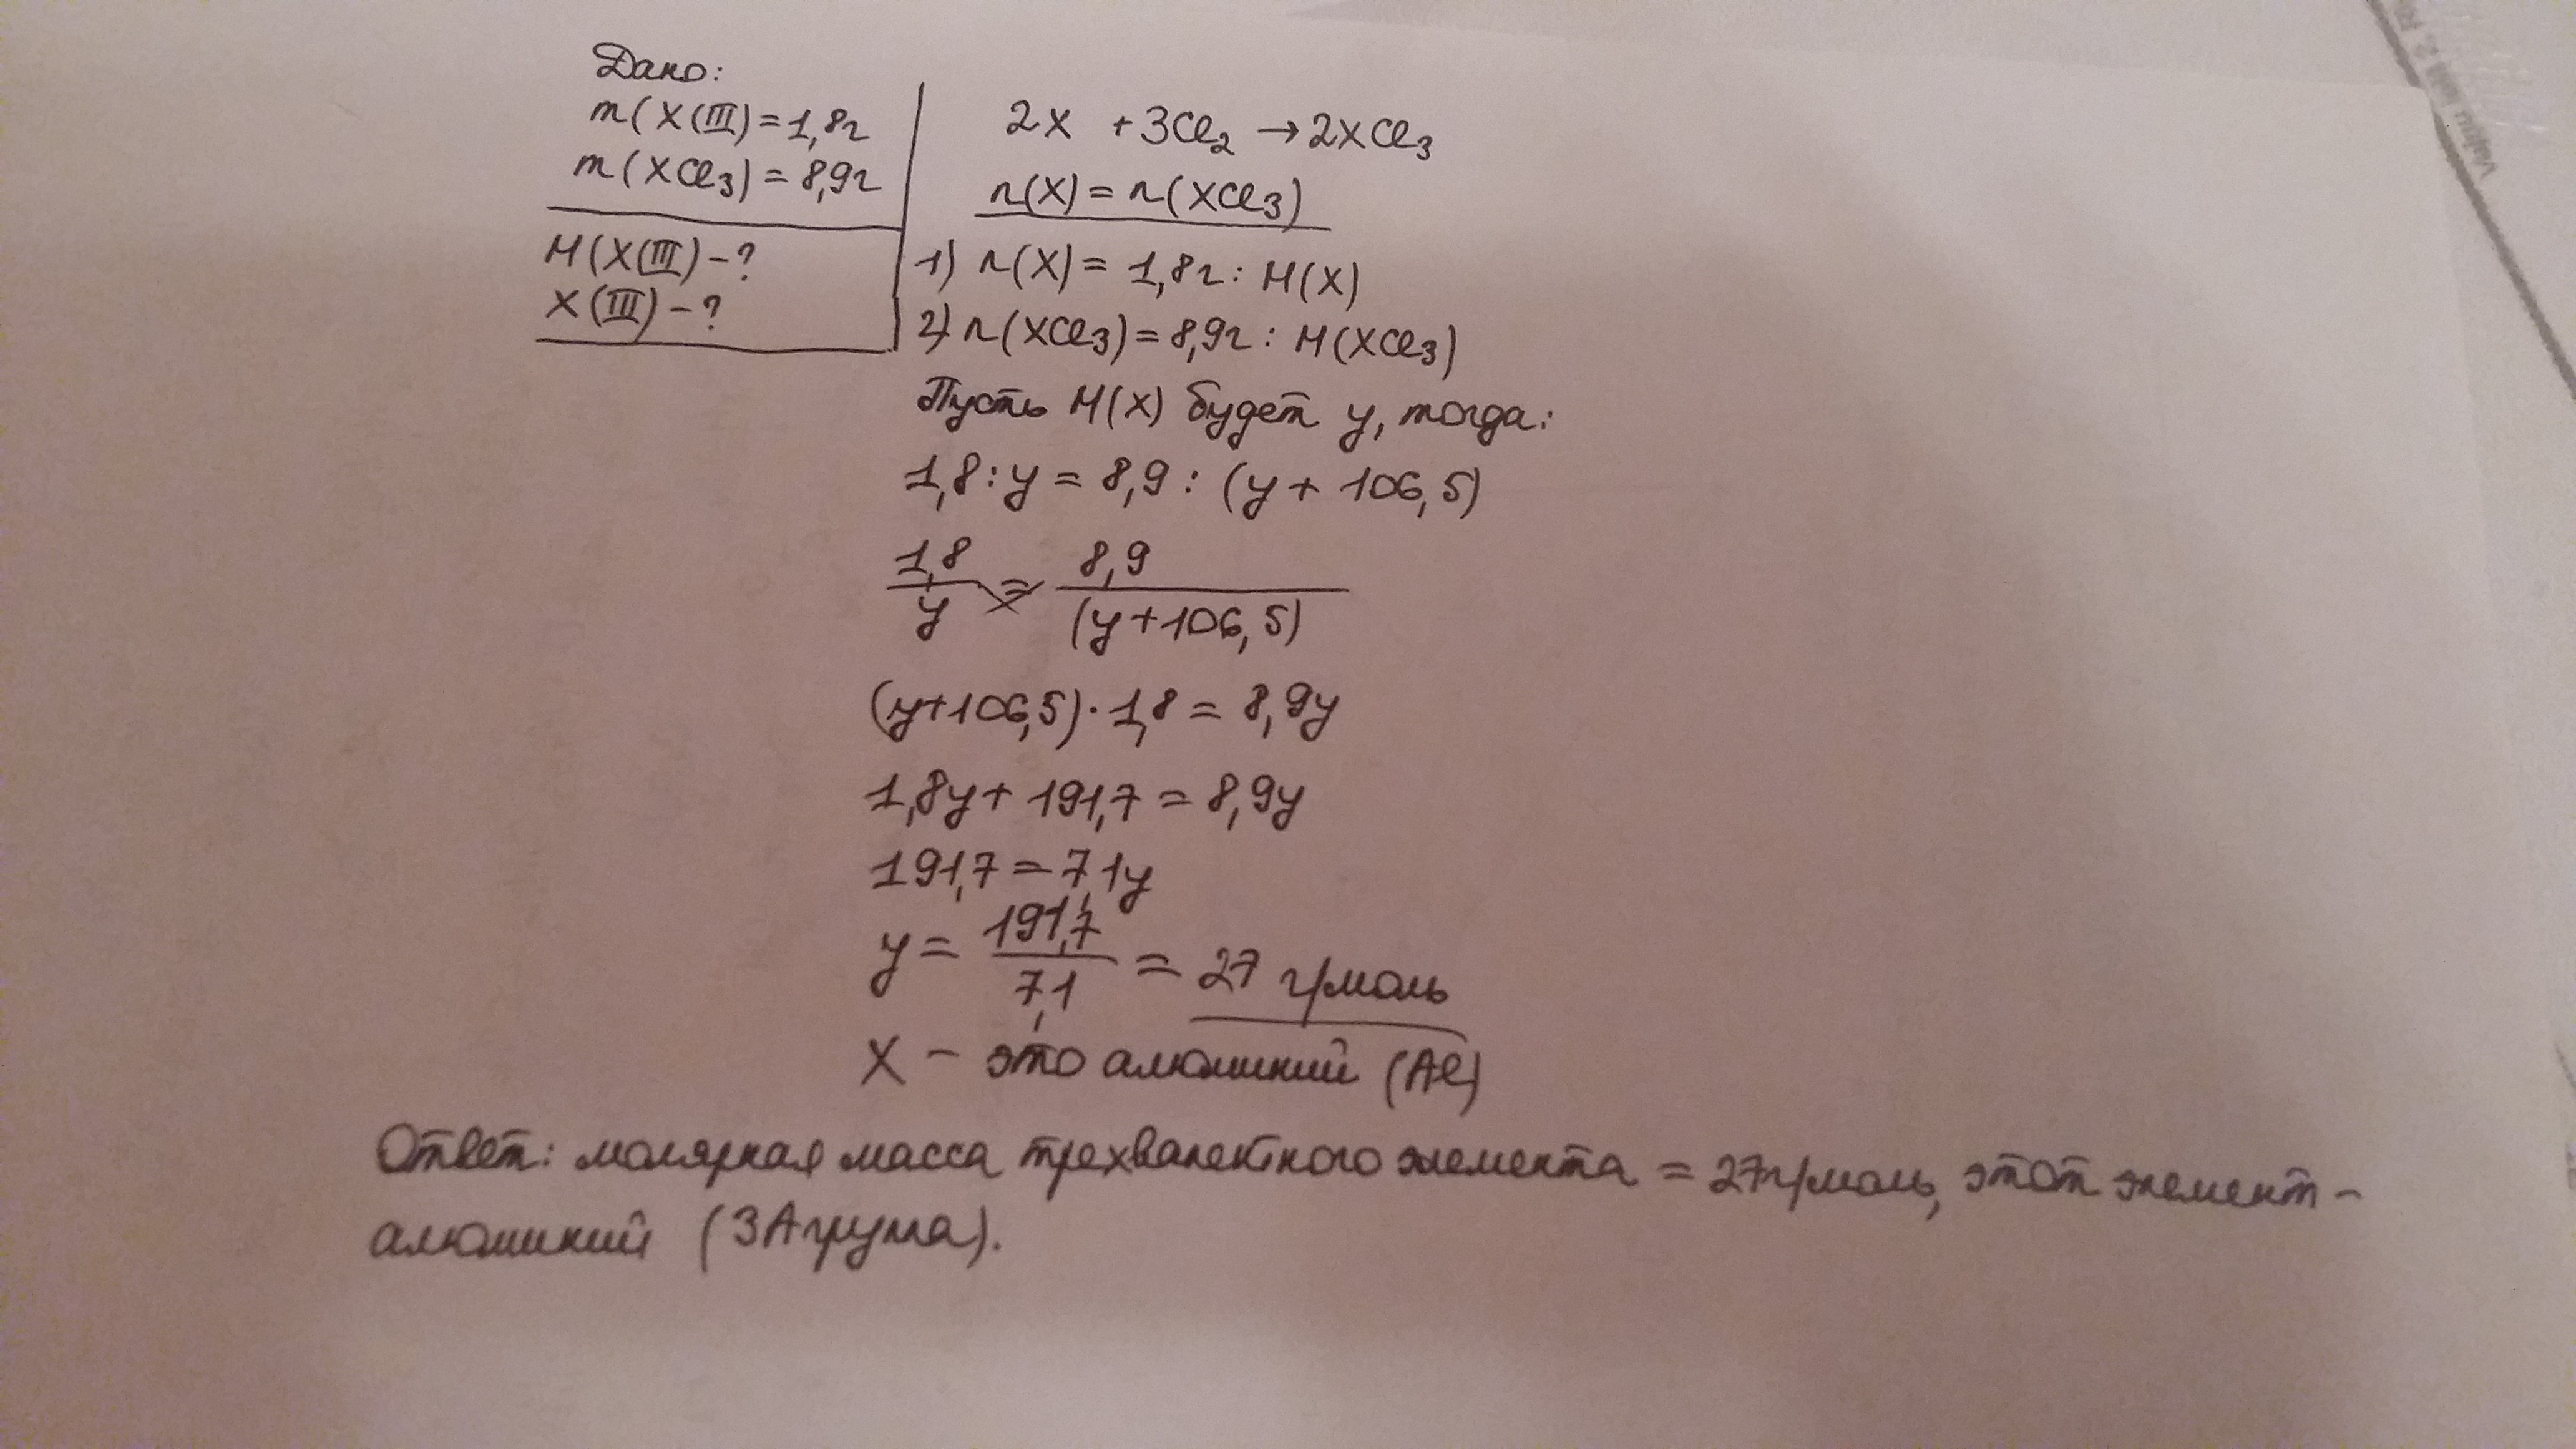 Дано:
m(X(III)=1,8г
m(XCl₃)=8,9г
M(X(III)-?
X(III)-?
2X +3Cl₂ →2XCl₃
n(X)=n(XCl₃)
1) n(X)= 1,8г: M(X)
2) n(XCl₃)=8,9г: M(XCl₃)
Пусть M(X) будет y, тогда:
1,8:y = 8,9: (y+ 106,5)
1,8/y = 8,9/(y+106,5)
(y+106,5)·1,8= 8,9y
1,8y+ 191,7=8,9y
191,7=7,1y
y= 191,7/7,1 = 27 г/моль
X - это алюминий (Al)
Ответ: молярная масса трехвалентного элемента =27г/моль, этот элемент-
алюминий (3А группа).